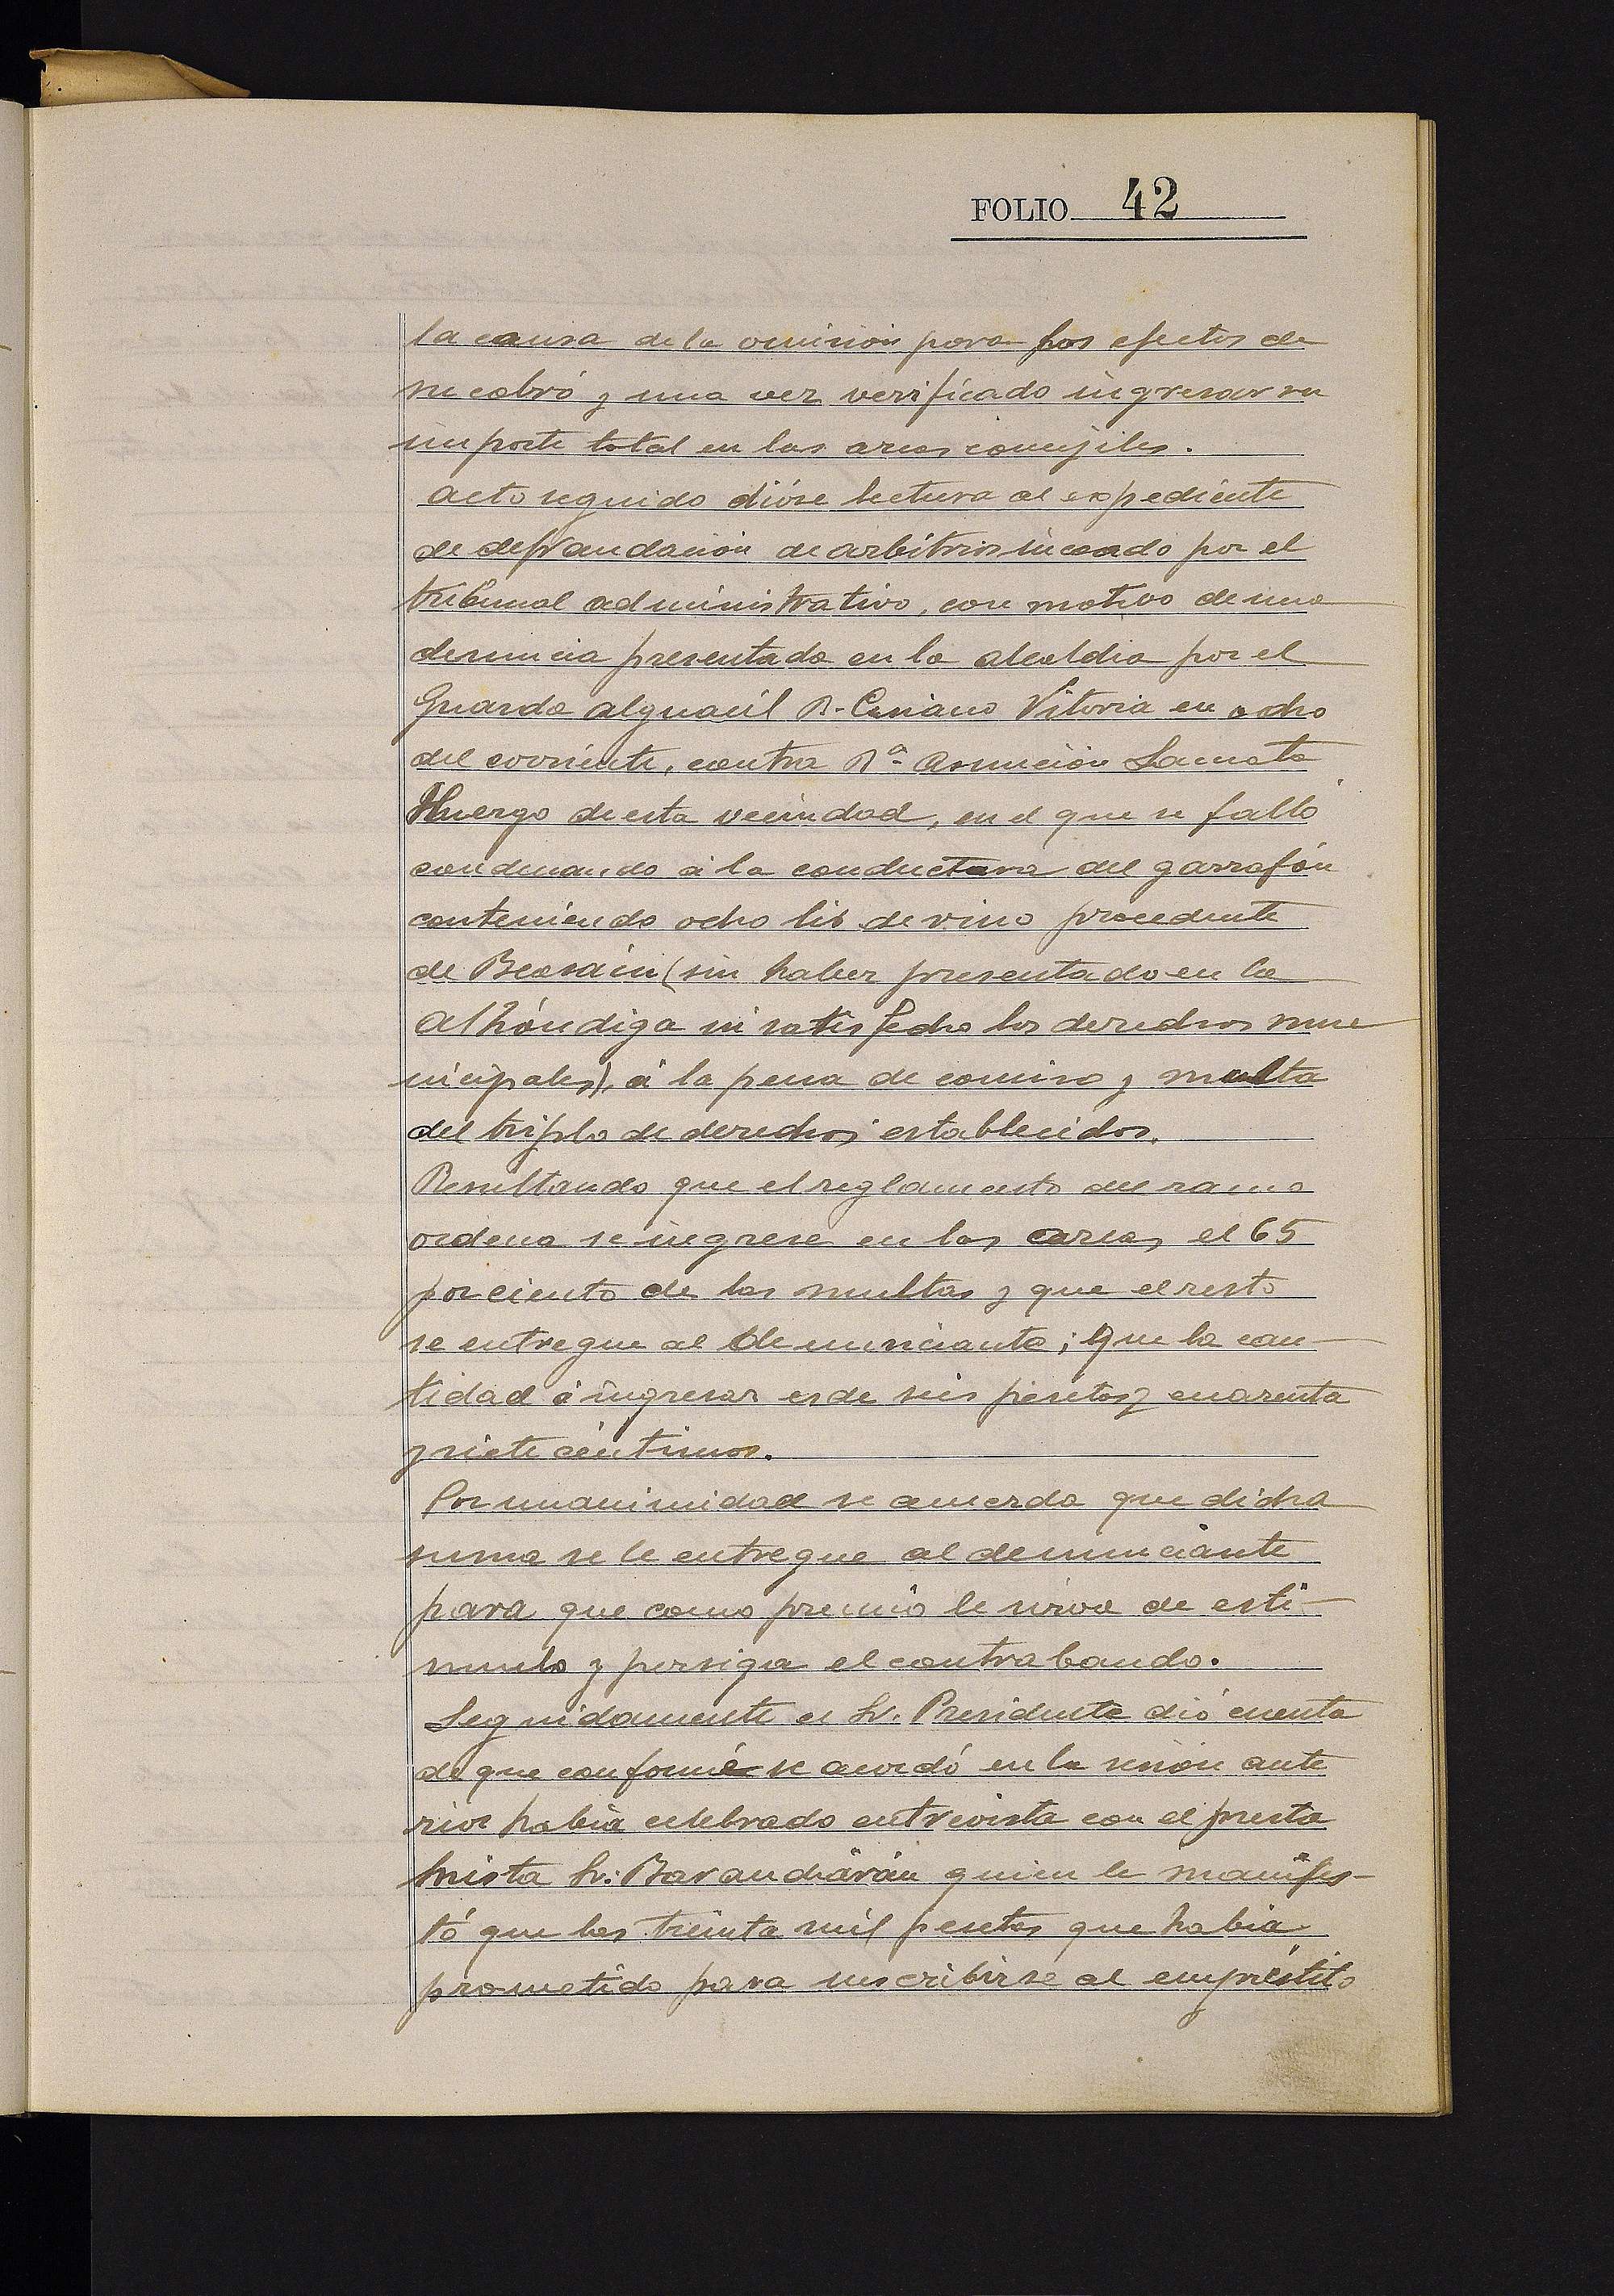 FOLIO 42
la causa de la omisión para los efectos de
su cobró y una vez verificado ingresar su
importe total en las arcas concejiles.
Acto seguido dióse lectura al expediente
de defraudación de arbitrios incoado por el
tribunal administrativo, con motivo de una
denuncia presentada en la alcaldia por el
Guarda alguacil D. Casiano Vitoria en ocho
del corriente, contra Dª Asunción Lamata
Huergo de esta vecindad, en el que se falló
condenando á la conductora del garrafón
conteniendo ocho lib de vino procedente
de Beasáin (sin haber presentado en la
Alhóndiga ni satisfecho los derechos mu
nicipales), á la pena de comiso y multa
del triplo de derechos establecidos.
Resultando que el reglamento del ramo
ordena se ingrese en las arcas el 65
por ciento de las multas y que el resto
se entregue al denunciante; Que la can-
tidad á ingresar es de seis pesetas y cuarenta
y siete céntimos.
Por unanimidad se acuerda que dicha
suma se le entregue al denunciante
para que como premio le sirva de esti-
mulo y persiga el contrabando.
Seguidamente el Sr. Presidente dió cuenta
de que conforme se acordó en la sesión ante
rior habia celebrado entrevista con el presta
mista Sr. Barandiarán quien le manifes-
tó que las treinta mil pesetas que habia
prometido para inscribirse al empréstito